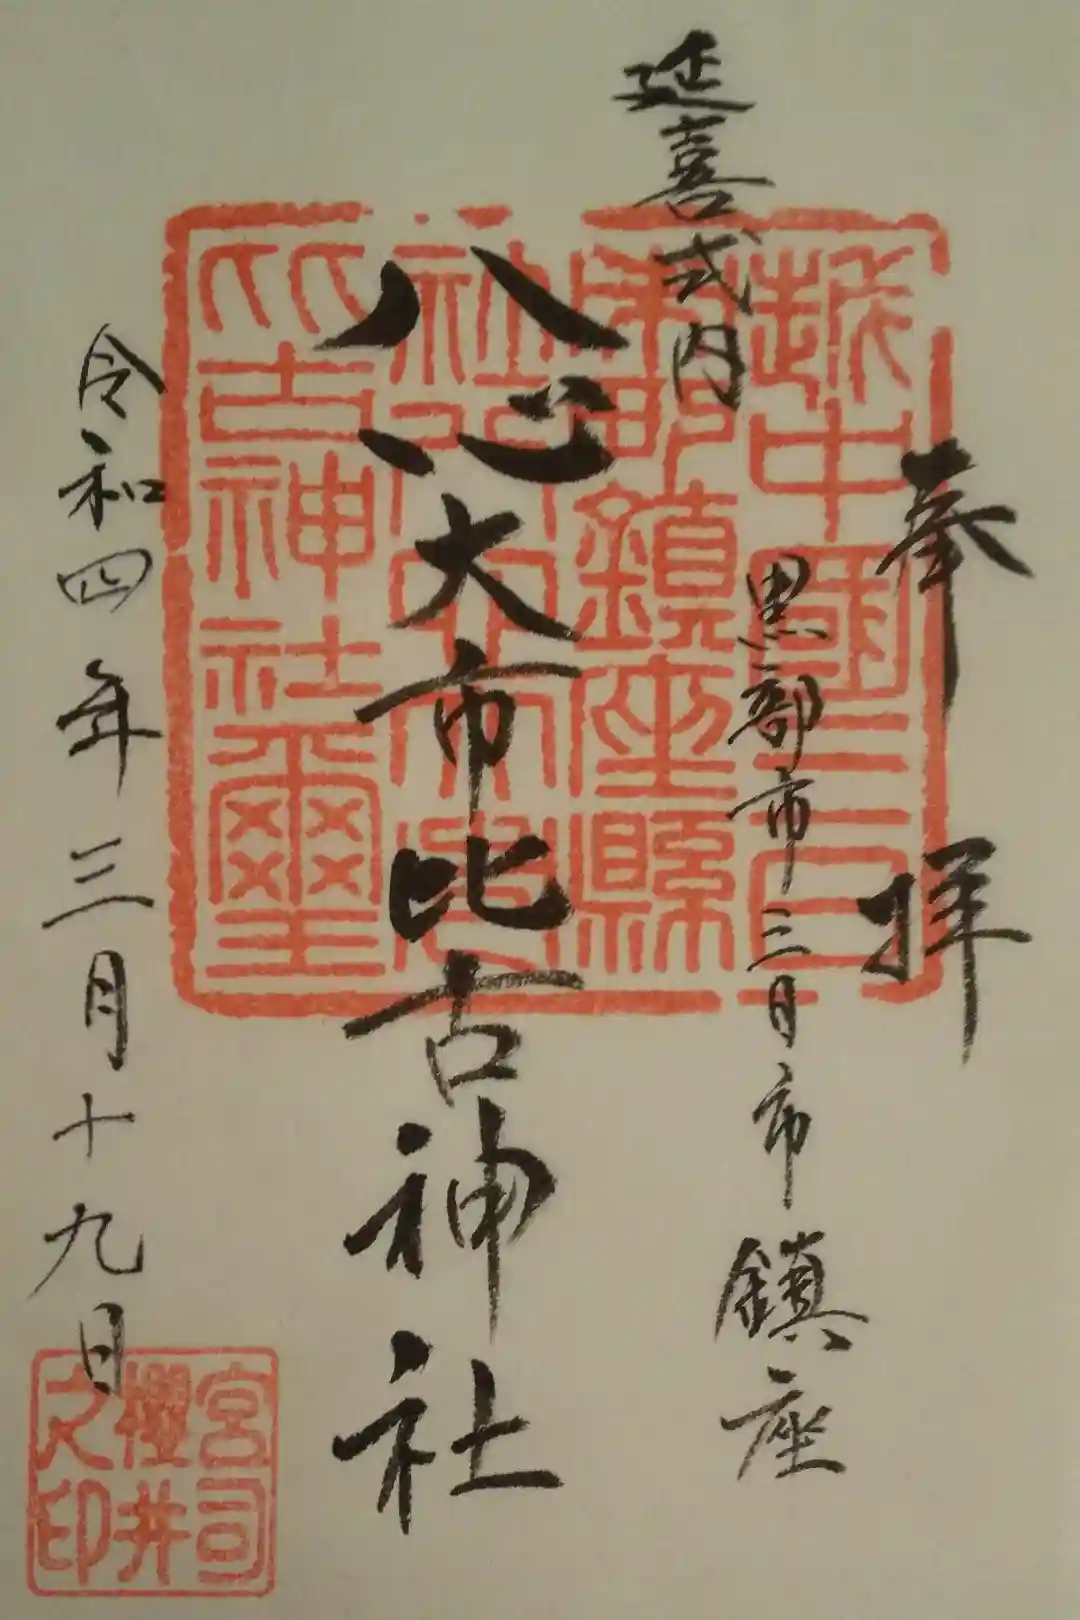 奉拝
延喜式内
黒部市三日市鎮座
八心大市比古神社
令和四年三月十九日
越中國三日
市町鎮座縣
社八心大市
比古神社璽
宮司
櫻井
之印